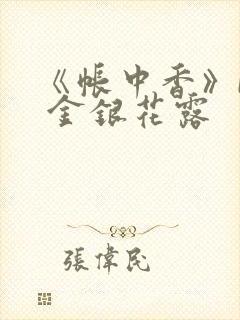 《帳中香》
金銀花露
張偉民